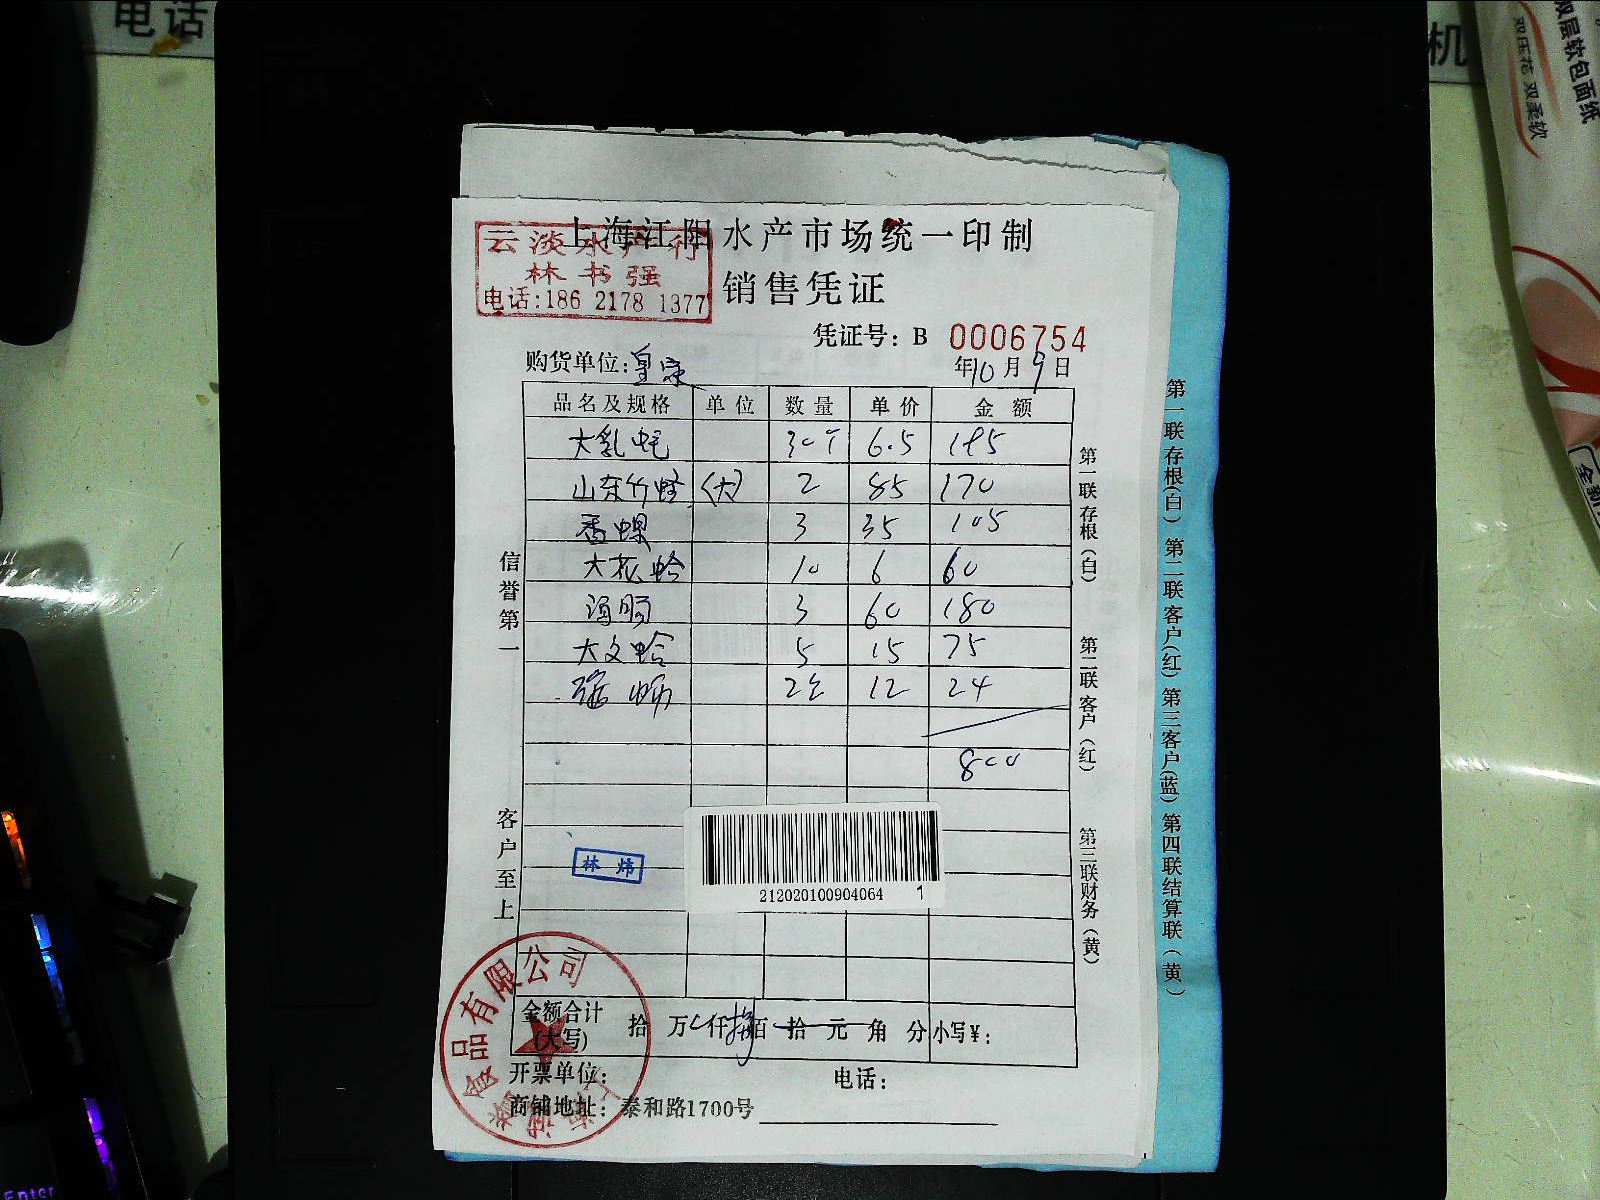 电话
机
双层软包面纸
双压花 双柔软
上海江阳水产市场统一印制
云淡水产行
林书强
电话:186 2178 1377
销售凭证
凭证号: B 0006754
购货单位:皇家
年10月9日
品名及规格 单位 数量 单价 金额
30个 6.5 195
山东竹蛏 (大) 2 85 170
香螺 3 35 105
大花蛤 10 6 60
海肠 3 60 180
大文蛤 5 15 75
2 12 24
800
信誉第一
客户至上
第一联存根(白)
第二联客户(红)
第三联财务(黄)
第一联存根(白) 第二联客户(红) 第三客户(蓝) 第四联结算联(黄)
林炜
212020100904064 1
金额合计
(大写)
拾 万 仟 捌 佰 拾 元 角 分 小写¥:
开票单位:
电话:
商铺地址: 泰和路1700号
食品有限公司
Enter